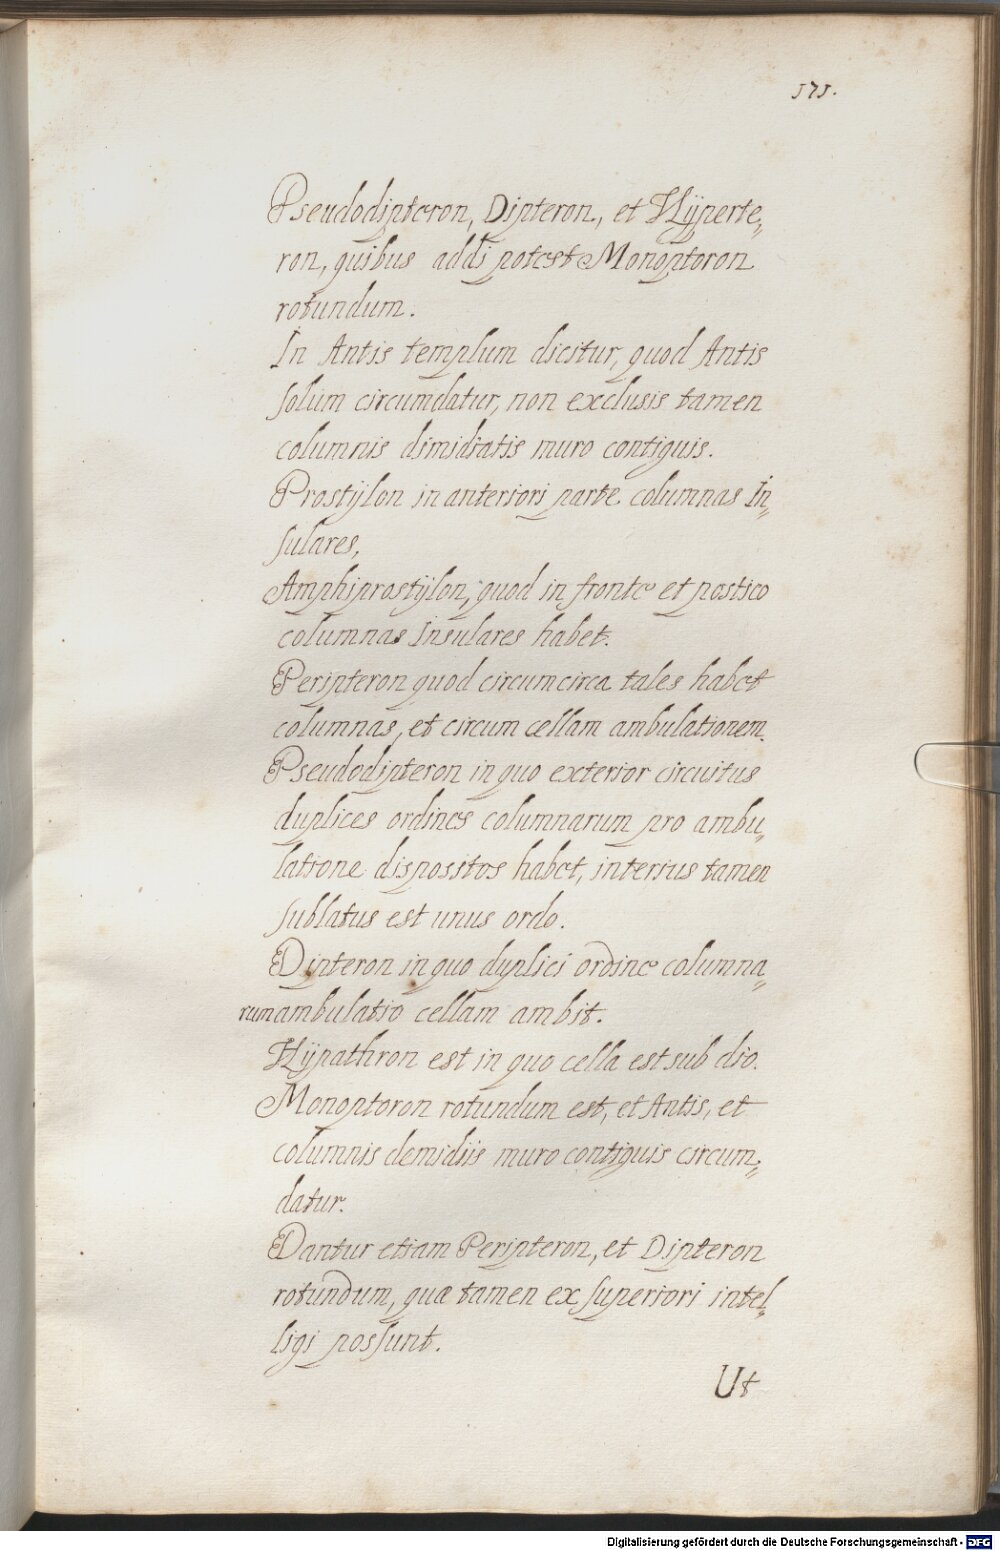 171.
Pseudodipteron, Dipteron, et Hÿperte„
ron, quibus addi potest Monopteron
rotundum.
In Antis templum dicitur, quod Antis
solum circumdatur, non exclusis tamen
columnis dimidiatis muro contiguis.
Prostÿlon in anteriori parte columnas In„
sulares,
Amphiprostÿlon, quod in fronte et postico
columnas Insulares habet.
Peripteron quod circumcirca tales habet
columnas, et circum cellam ambulationem.
Pseudodipteron in quo exterior circuitus
duplices ordines columnarum pro ambu„
latione dispositos habet, interius tamen
sublatus est unus ordo.
Dipteron in quo duplici ordine columna„
rum ambulatio cellam ambit.
Hÿpathron est in quo cella est sub dio.
Monoptoron rotundum est, et Antis, et
columnis demidiis muro contiguis circum„
datur.
Dantur etiam Peripteron, et Dipteron
rotundum, quæ tamen ex superiori intel„
ligi possunt.
Ut
Digitalisierung gefördert durch die Deutsche Forschungsgemeinschaft - DFG